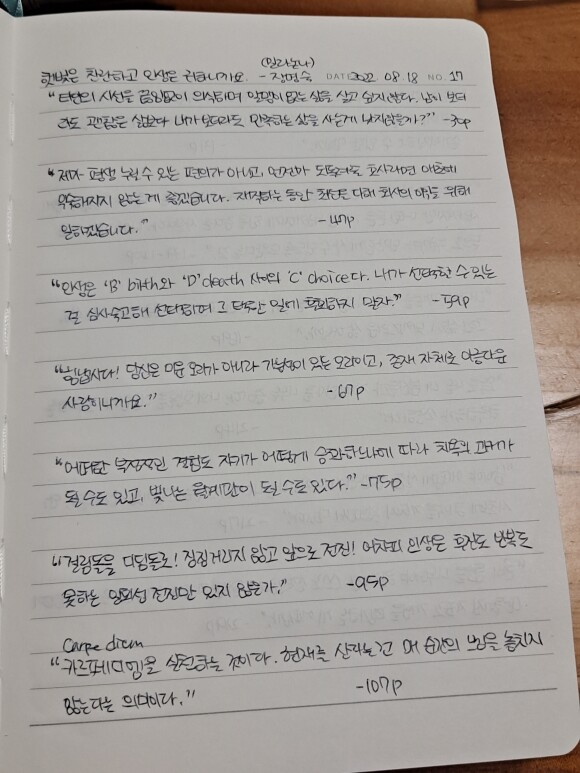 (밀라논나)
햇빛은 찬란하고 인생은 귀하니까요. - 장명숙 DATE 2022 08 18 NO. 17
"타인의 시선을 끊임없이 의식하며 알맹이 없는 삶을 살고 싶지 않다. 남이 보더
라도 괜찮은 삶보다 내가 보더라도 만족하는 삶을 사는게 낫지않을까?" -30p
"제가 평생 누릴 수 있는 편의가 아니고, 언젠가 도로 회사라면 애초에
익숙해지지 않는 게 좋겠습니다. 재직하는 동안 최선을 다해 회사의 이익을 위해
일하겠습니다." -47p
"인생은 'B' birth와 'D' death 사이의 'C' choice다. 내가 선택할 수 있는
걸 심사숙고해 선택하며 그 선택한 일에 후회하지 말자." -59p
"힘냅시다! 당신은 미운 오리가 아니라 기품있는 오리이고, 존재 자체로 아름다운
사람이니까요." -67p
"어떠한 부정적인 경험도 자기가 어떻게 승화하느냐에 따라 치욕의 과거가
될 수도 있고, 빛나는 훈장이 될 수도 있다." -75p
"걸림돌을 디딤돌로! 징징거리지 않고 앞으로 전진! 어차피 인생은 후진도 반복도
못하는 일회성 전진만 있지 않은가." -95p
Carpe diem
"카르페디엠을 실천하는 것이다. 현재를 산다는건 매 순간의 느낌을 놓치지
않는다는 의미이다." -107p